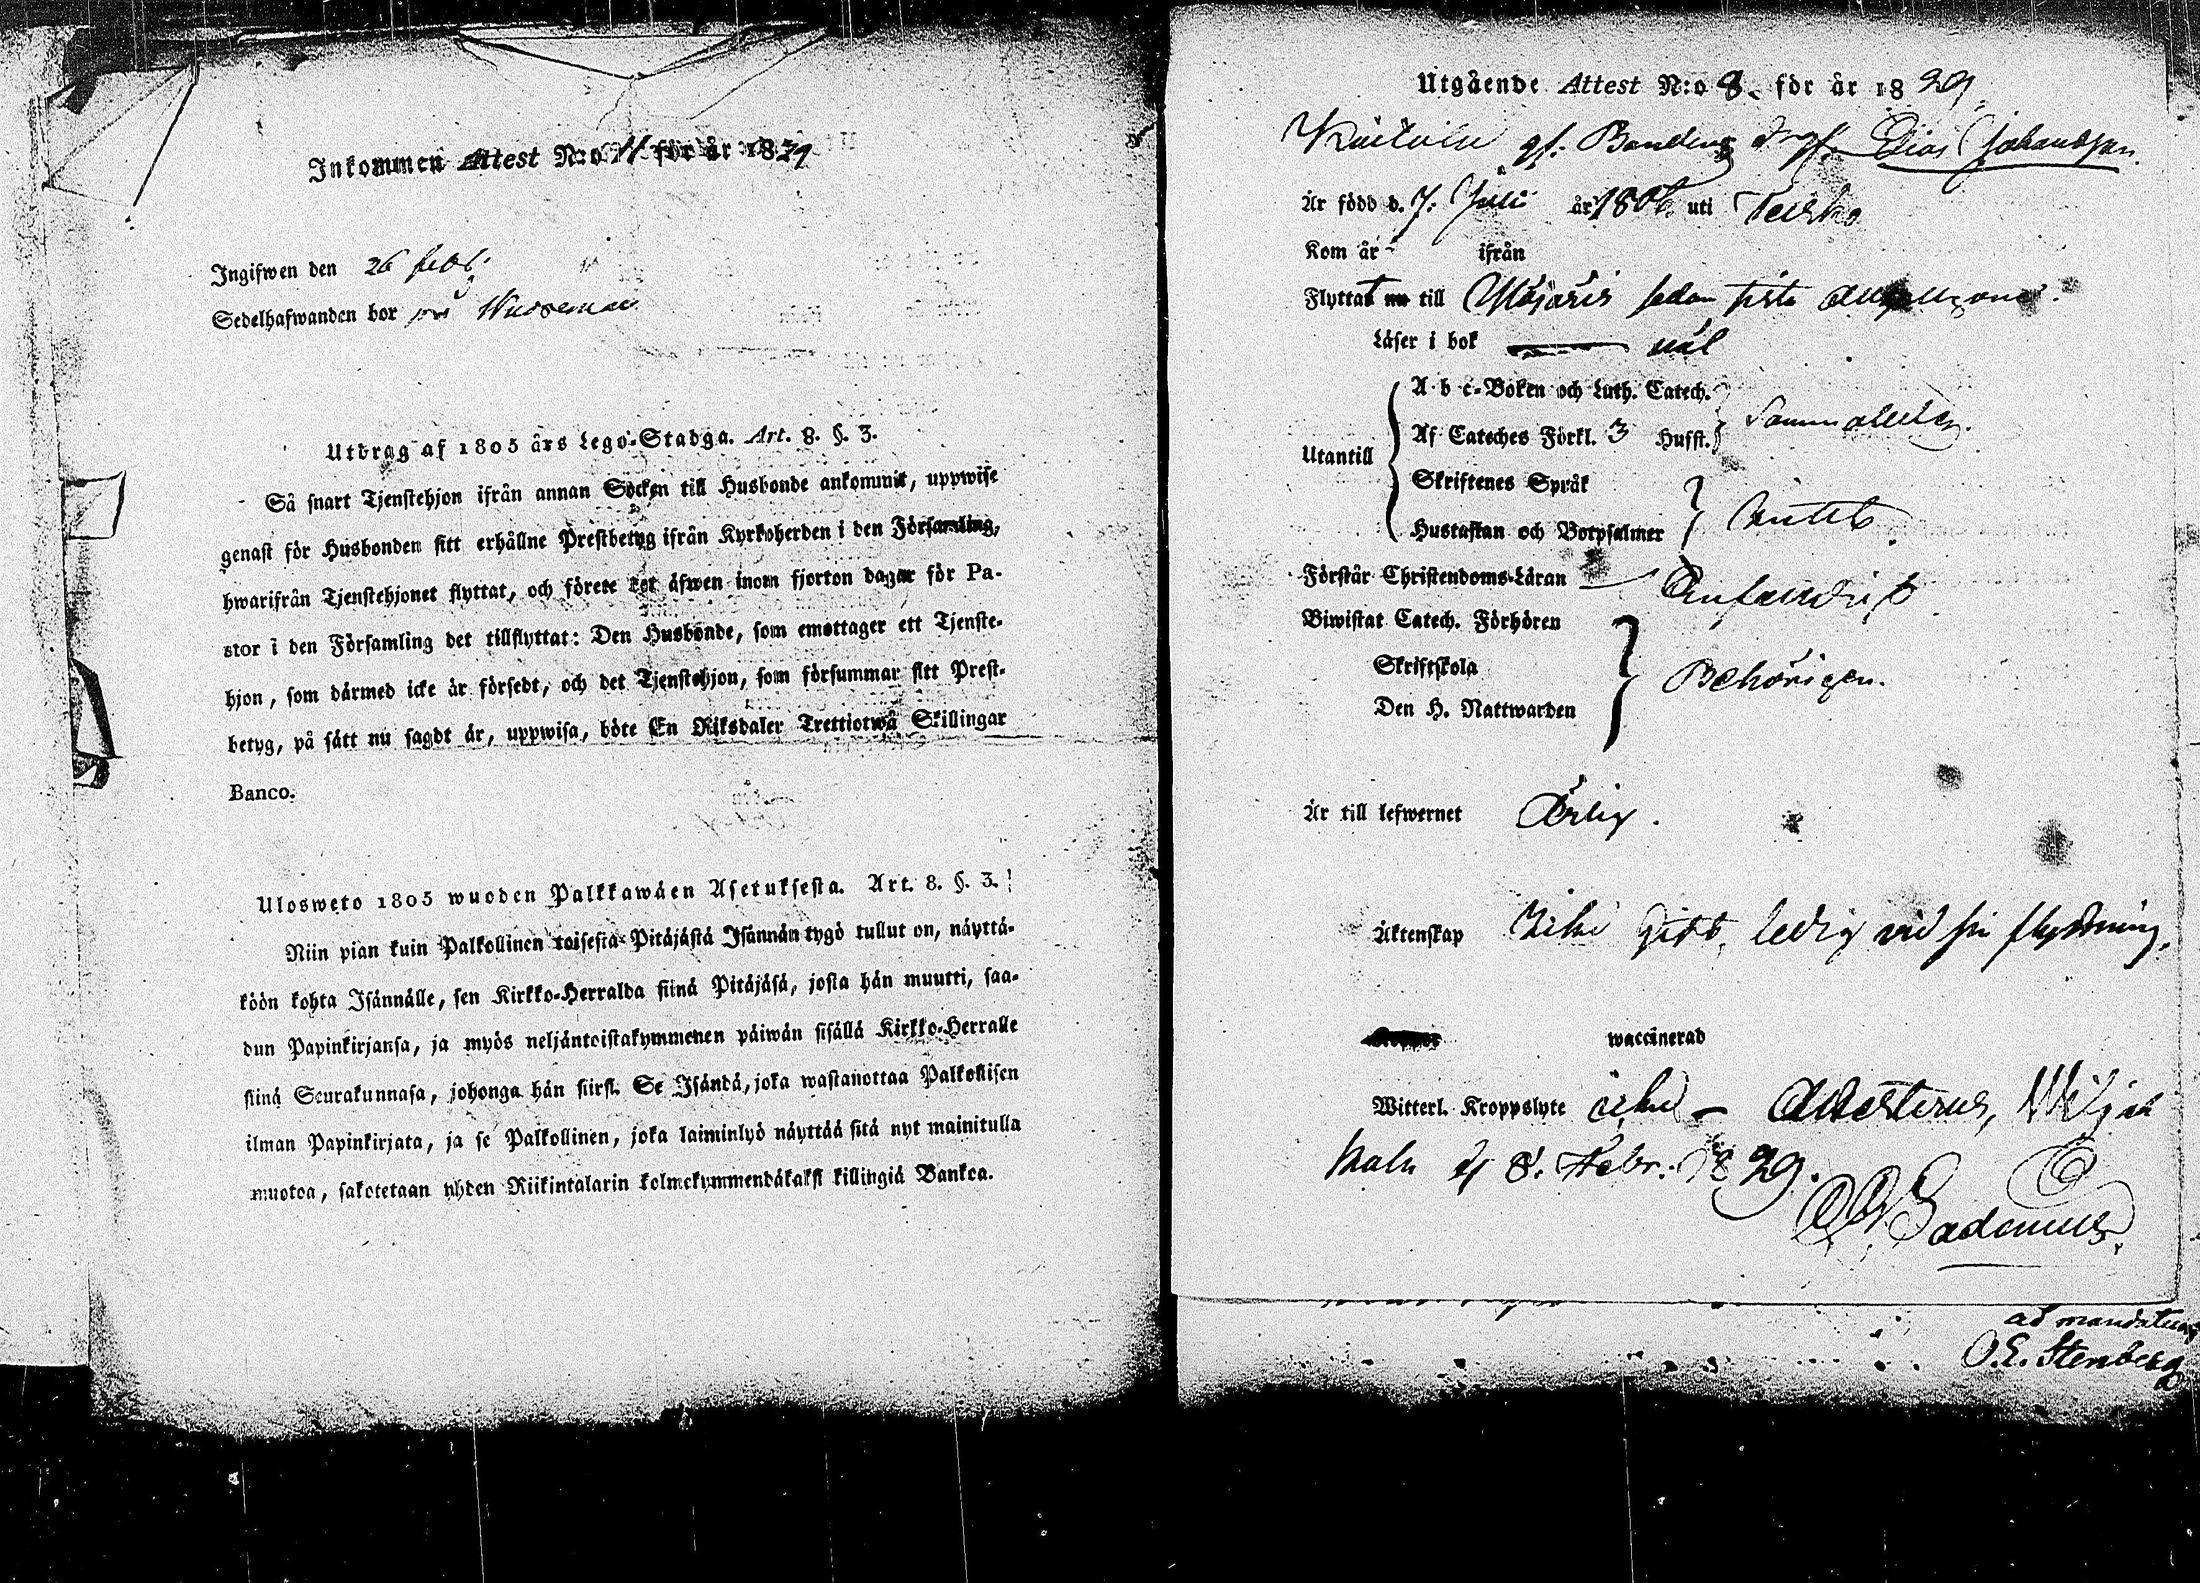 Inkommen Attest N:o 11 för år 1829
Ingifwen den 26 febr:
Sedelhafwanden bor på
Utdrag af 1805 års Lego-Stadga. Art. 8. §. 3.
Så snart Tjenstehjon ifrån annan Socken till Husbonde ankommit, uppwise
genast för Husbonden sitt erhållne Prestbetyg ifrån Kyrkoherden i den Församling,
hwarifrån Tjenstehjonet flyttat, och förete det äfwen inom fjorton dagar för Pa-
stor i den Församling det tillflyttat: Den Husbonde, som emottager ett Tjenste-
hjon, som därmed icke är försedt, och det Tjenstehjon, som försummar sitt Prest-
betyg, på sätt nu sagdt är, uppwisa, böte En Riksdaler Trettiotwå Skillingar
Banco.
Ulosweto 1805 wuoden Palkkawäen Asetuksesta. Art. 8. §. 3.
Niin pian kuin Palkollinen toisesta Pitäjästä Isännän tygö tullut on, näyttä-
köön kohta Isännälle, sen Kirkko-Herralda siinä Pitäjäsä, josta hän muutti, saa-
dun Papinkirjansa, ja myös neljäntoistakymmenen päiwän sisällä Kirkko-Herralle
siinä Seurakunnasa, johonga hän siirst. Se Isändä, joka wastanottaa Palkollisen
ilman Papinkirjata, ja se Palkollinen, joka laiminlyö näyttää sitä nyt mainitulla
muotoa, sakotetaan yhden Riikintalarin kolmekymmendäkaksi killingiä Bankoa.
Utgående Attest N:o 8. för år 1829.
Johansson.
Är född d. 7. Juli år 1806. uti Teisko
Kom år - ifrån
Flyttat nu till sedan sista
Läser i bok wäl
Utantill
A b c-Boken och Luth. Catech.
Af Cateches Förkl. 3 Husst. Sammaledes.
Skriftenes Språk
Hustaflan och Botpsalmer Intet.
Förstår Christendoms-Läran Enfaldigt
Biwistat Catech. Förhören
Skriftskola Behörigen.
Den H. Nattwarden
Är till lefwernet Ärlig.
Äktenskap Icke Gift, ledig vid sin flyttning.
waccinerad
Witterl. Kroppslyte icke - Attesterus,
d 8. Febr: 1829.
ad mandatum
O. E. Stenberg